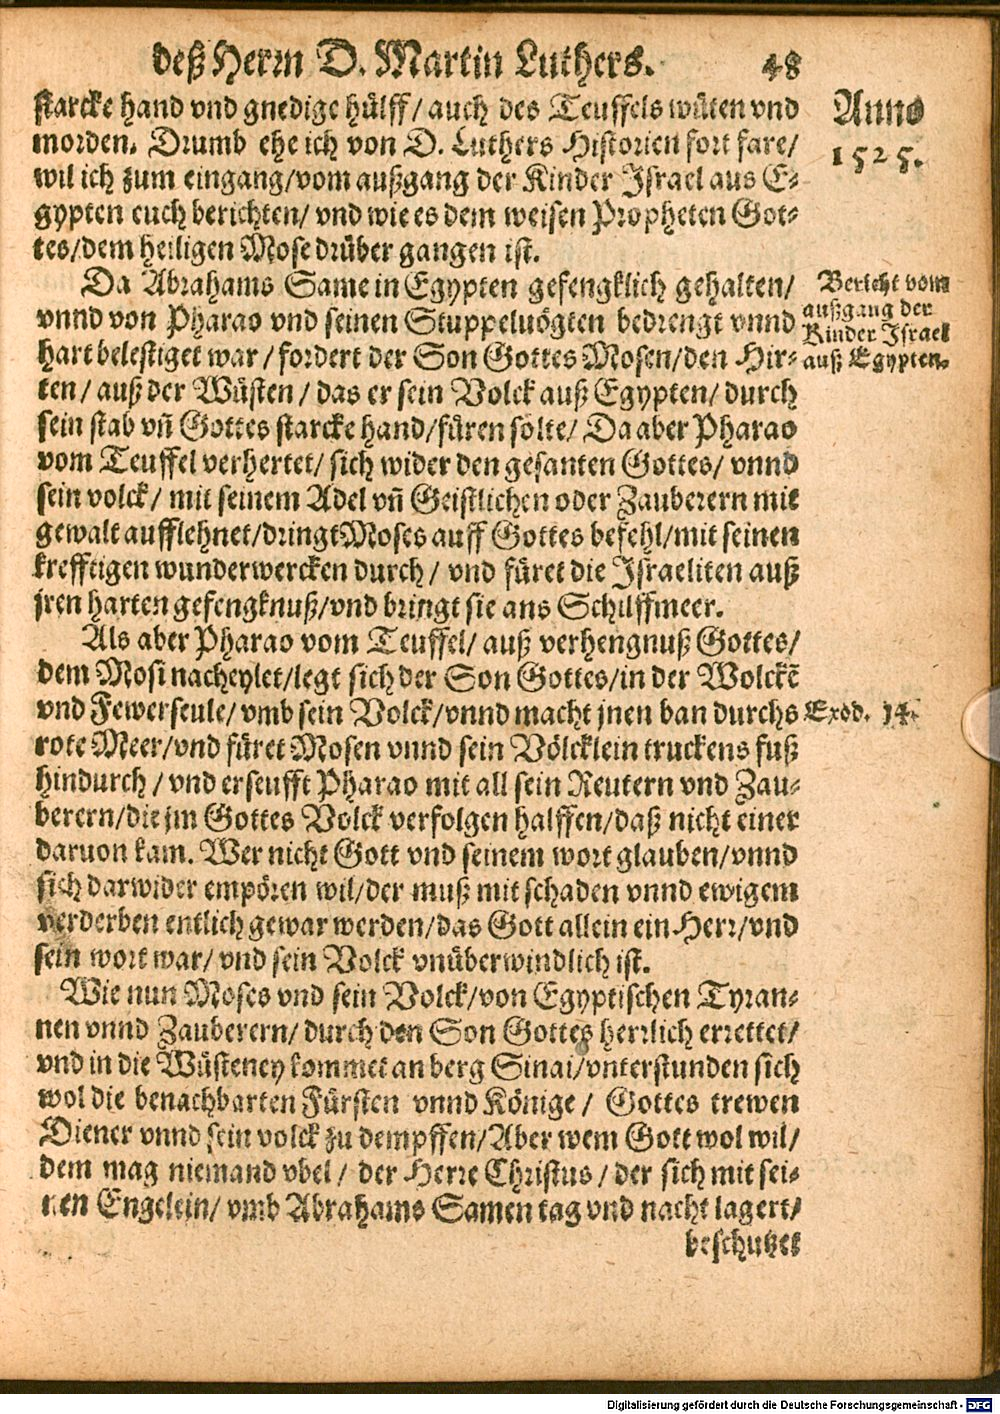 deß Herrn D. Martin Luthers. 48
starcke hand vnd gnedige hülff/ auch des Teuffels wüten vnd
Anno
1525.
morden. Drumb ehe ich von D. Luthers Historien fort fare/
wil ich zum eingang/vom außgang der Kinder Israel aus E-
gypten euch berichten/ vnd wie es dem weisen Propheten Got-
tes/dem heiligen Mose drüber gangen ist.
Da Abrahams Same in Egypten gefengklich gehalten/
vnnd von Pharao vnd seinen Stuppeluögten bedrengt vnnd
hart belestiget war/ fordert der Son Gottes Mosen/den Hir-
Bericht vom
außgang der
Kinder Israel
auß Egypten.
ten/ auß der Wüsten/ das er sein Volck auß Egypten/ durch
sein stab vn̄ Gottes starcke hand/füren solte/ Da aber Pharao
vom Teuffel verhertet/ sich wider den gesanten Gottes/ vnnd
sein volck/ mit seinem Adel vn̄ Geistlichen oder Zauberern mit
gewalt aufflehnet/dringt Moses auff Gottes befehl/mit seinen
krefftigen wunderwercken durch/ vnd füret die Israeliten auß
jren harten gefengknuß/vnd bringt sie ans Schilffmeer.
Als aber Pharao vom Teuffel/ auß verhengnuß Gottes/
dem Mosi nacheylet/legt sich der Son Gottes/in der Wolckē
vnd Fewerseule/ vmb sein Volck/vnnd macht jnen ban durchs
Exod. 14.
rote Meer/vnd füret Mosen vnnd sein Völcklein truckens fuß
hindurch/ vnd erseufft Pharao mit all sein Reutern vnd Zau-
berern/die jm Gottes Volck verfolgen halffen/daß nicht einer
daruon kam. Wer nicht Gott vnd seinem wort glauben/vnnd
sich darwider empören wil/der muß mit schaden vnnd ewigem
verderben entlich gewar werden/das Gott allein ein Herr/vnd
sein wort war/ vnd sein Volck vnüberwindlich ist.
Wie nun Moses vnd sein Volck/von Egyptischen Tyran-
nen vnnd Zauberern/ durch den Son Gottes herrlich errettet/
vnd in die Wüsteney kommet an berg Sinai/vnterstunden sich
wol die benachbarten Fürsten vnnd Könige/ Gottes trewen
Diener vnnd sein volck zu dempffen/Aber wem Gott wol wil/
dem mag niemand vbel/ der Herre Christus/ der sich mit sei-
nen Engelein/ vmb Abrahams Samen tag vnd nacht lagert/
beschutzet
Digitalisierung gefördert durch die Deutsche Forschungsgemeinschaft - DFG